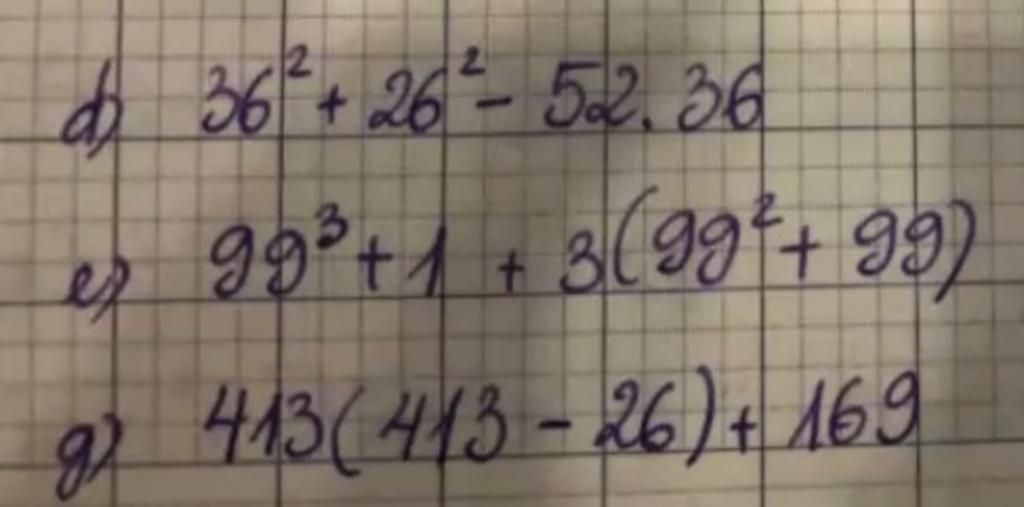 d) 36² + 26² - 52. 36
e) 99³ + 1 + 3(99² + 99)
g) 413(413 - 26) + 169